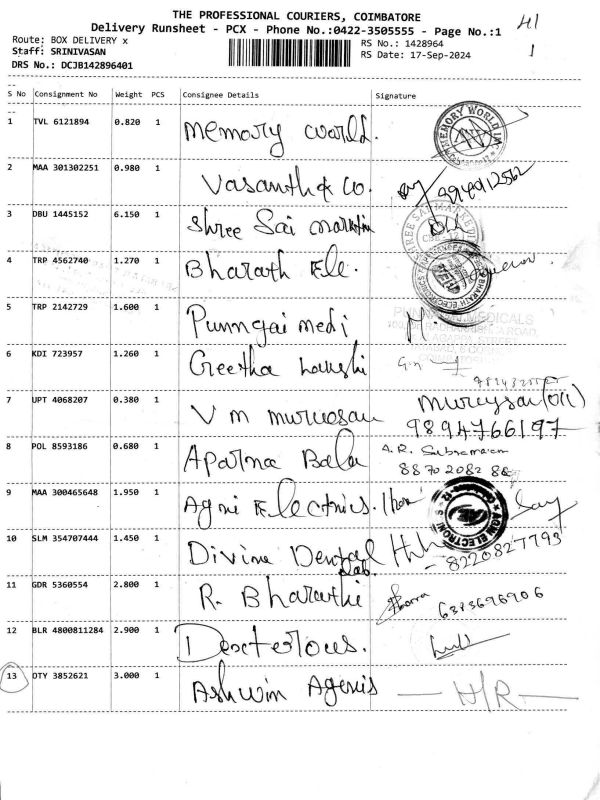 THE PROFESSIONAL COURIERS, COIMBATORE
Delivery Runsheet - PCX - Phone No.:0422-3505555 - Page No.:1
41
Route: BOX DELIVERY x
RS No.: 1428964
1
Staff: SRINIVASAN
RS Date: 17-Sep-2024
DRS No.: DCJB142896401
S No Consignment No Weight PCS Consignee Details Signature
1 TVL 6121894 0.820 1 Memory World.
MEMORY WORLD
2 MAA 301302251 0.980 1 Vasanth & Co.
3 DBU 1445152 6.150 1 Shree Sai
4 TRP 4562740 1.270 1 Bharath Ele.
5 TRP 2142729 1.600 1 Punngai medi
MEDICALS
6 KDI 723957 1.260 1 Geetha
7 UPT 4068207 0.380 1 V M
9894766197
8 POL 8593186 0.680 1 Aparna Bala
A.R.
9 MAA 300465648 1.950 1 Agni Electrnics.
AGNI ELECTRONICS
10 SLM 354707444 1.450 1 Divine Dental
Lab.
8220827793
11 GDR 5360554 2.800 1 R. Bharathi
6383696906
12 BLR 4800811284 2.900 1 Dexterous.
13 OTY 3852621 3.000 1 Ashwin Agencis
H/R